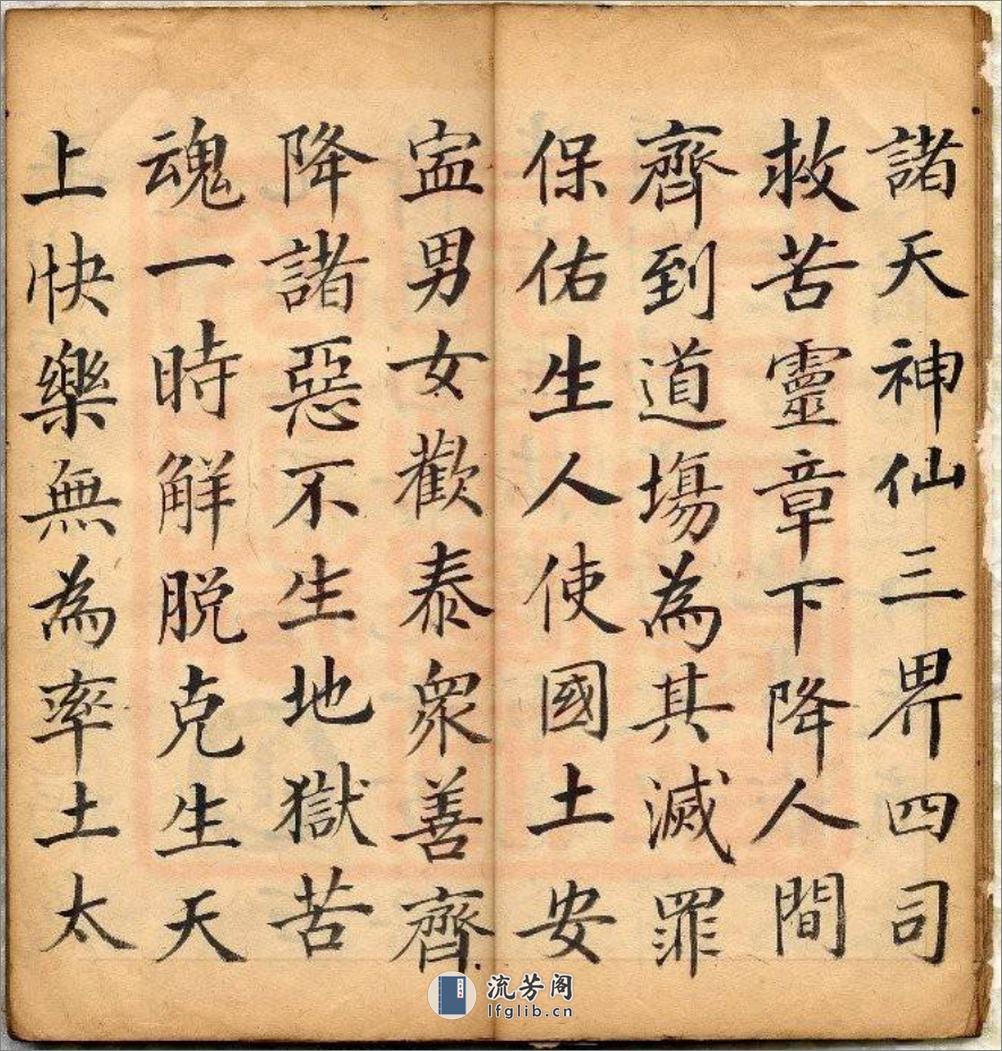 諸天神仙三界四司
救苦靈章下降人間
齊到道塲為其滅罪
保佑生人使國土安
寍男女歡泰衆善齊
降諸惡不生地獄苦
魂一時觧脱克生天
上快樂無為率土太
流芳阁
lfglib.cn